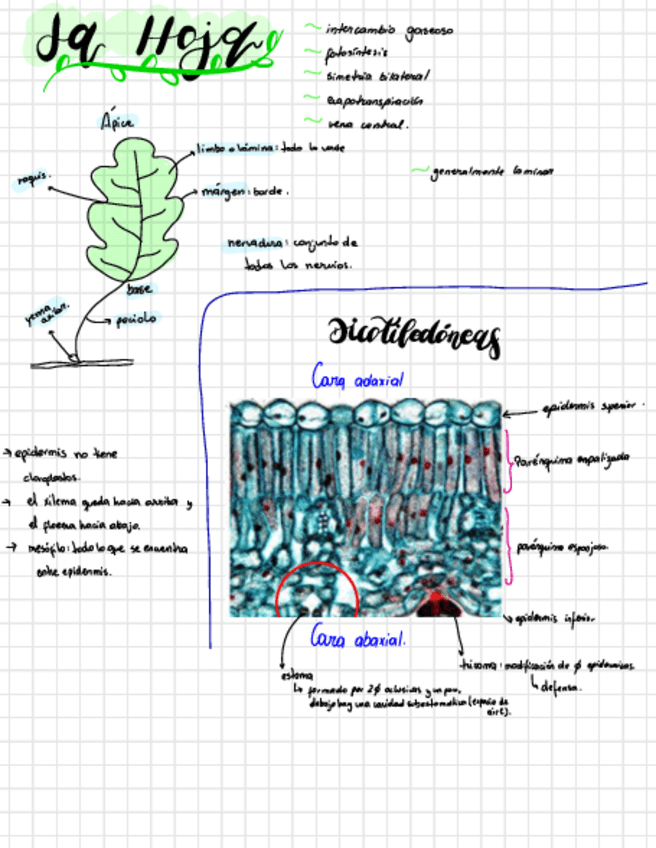 La Hoja
~ intercambio gaseoso
~ fotosíntesis
~ simetría bilateral
~ evapotranspiración
~ vena central.
~ generalmente laminar
Ápice
limbo o lámina: todo lo verde
raquis.
márgen: borde.
nervadura: conjunto de
todos los nervios.
base
yema axilar.
peciolo
Dicotiledóneas
Cara adaxial
epidermis superior.
Parénquima empalizada
parénquima esponjoso.
epidermis inferior.
Cara abaxial.
→ epidermis no tiene
cloroplastos.
→ el xilema queda hacia arriba y
el floema hacia abajo.
→ mesófilo: todo lo que se encuentra
entre epidermis.
estoma
↳ formado por 2 ∅ oclusivas y un poro,
debajo hay una cavidad subestomática (espacio de
aire).
tricoma: modificación de ∅ epidérmicas
↳ defensa.